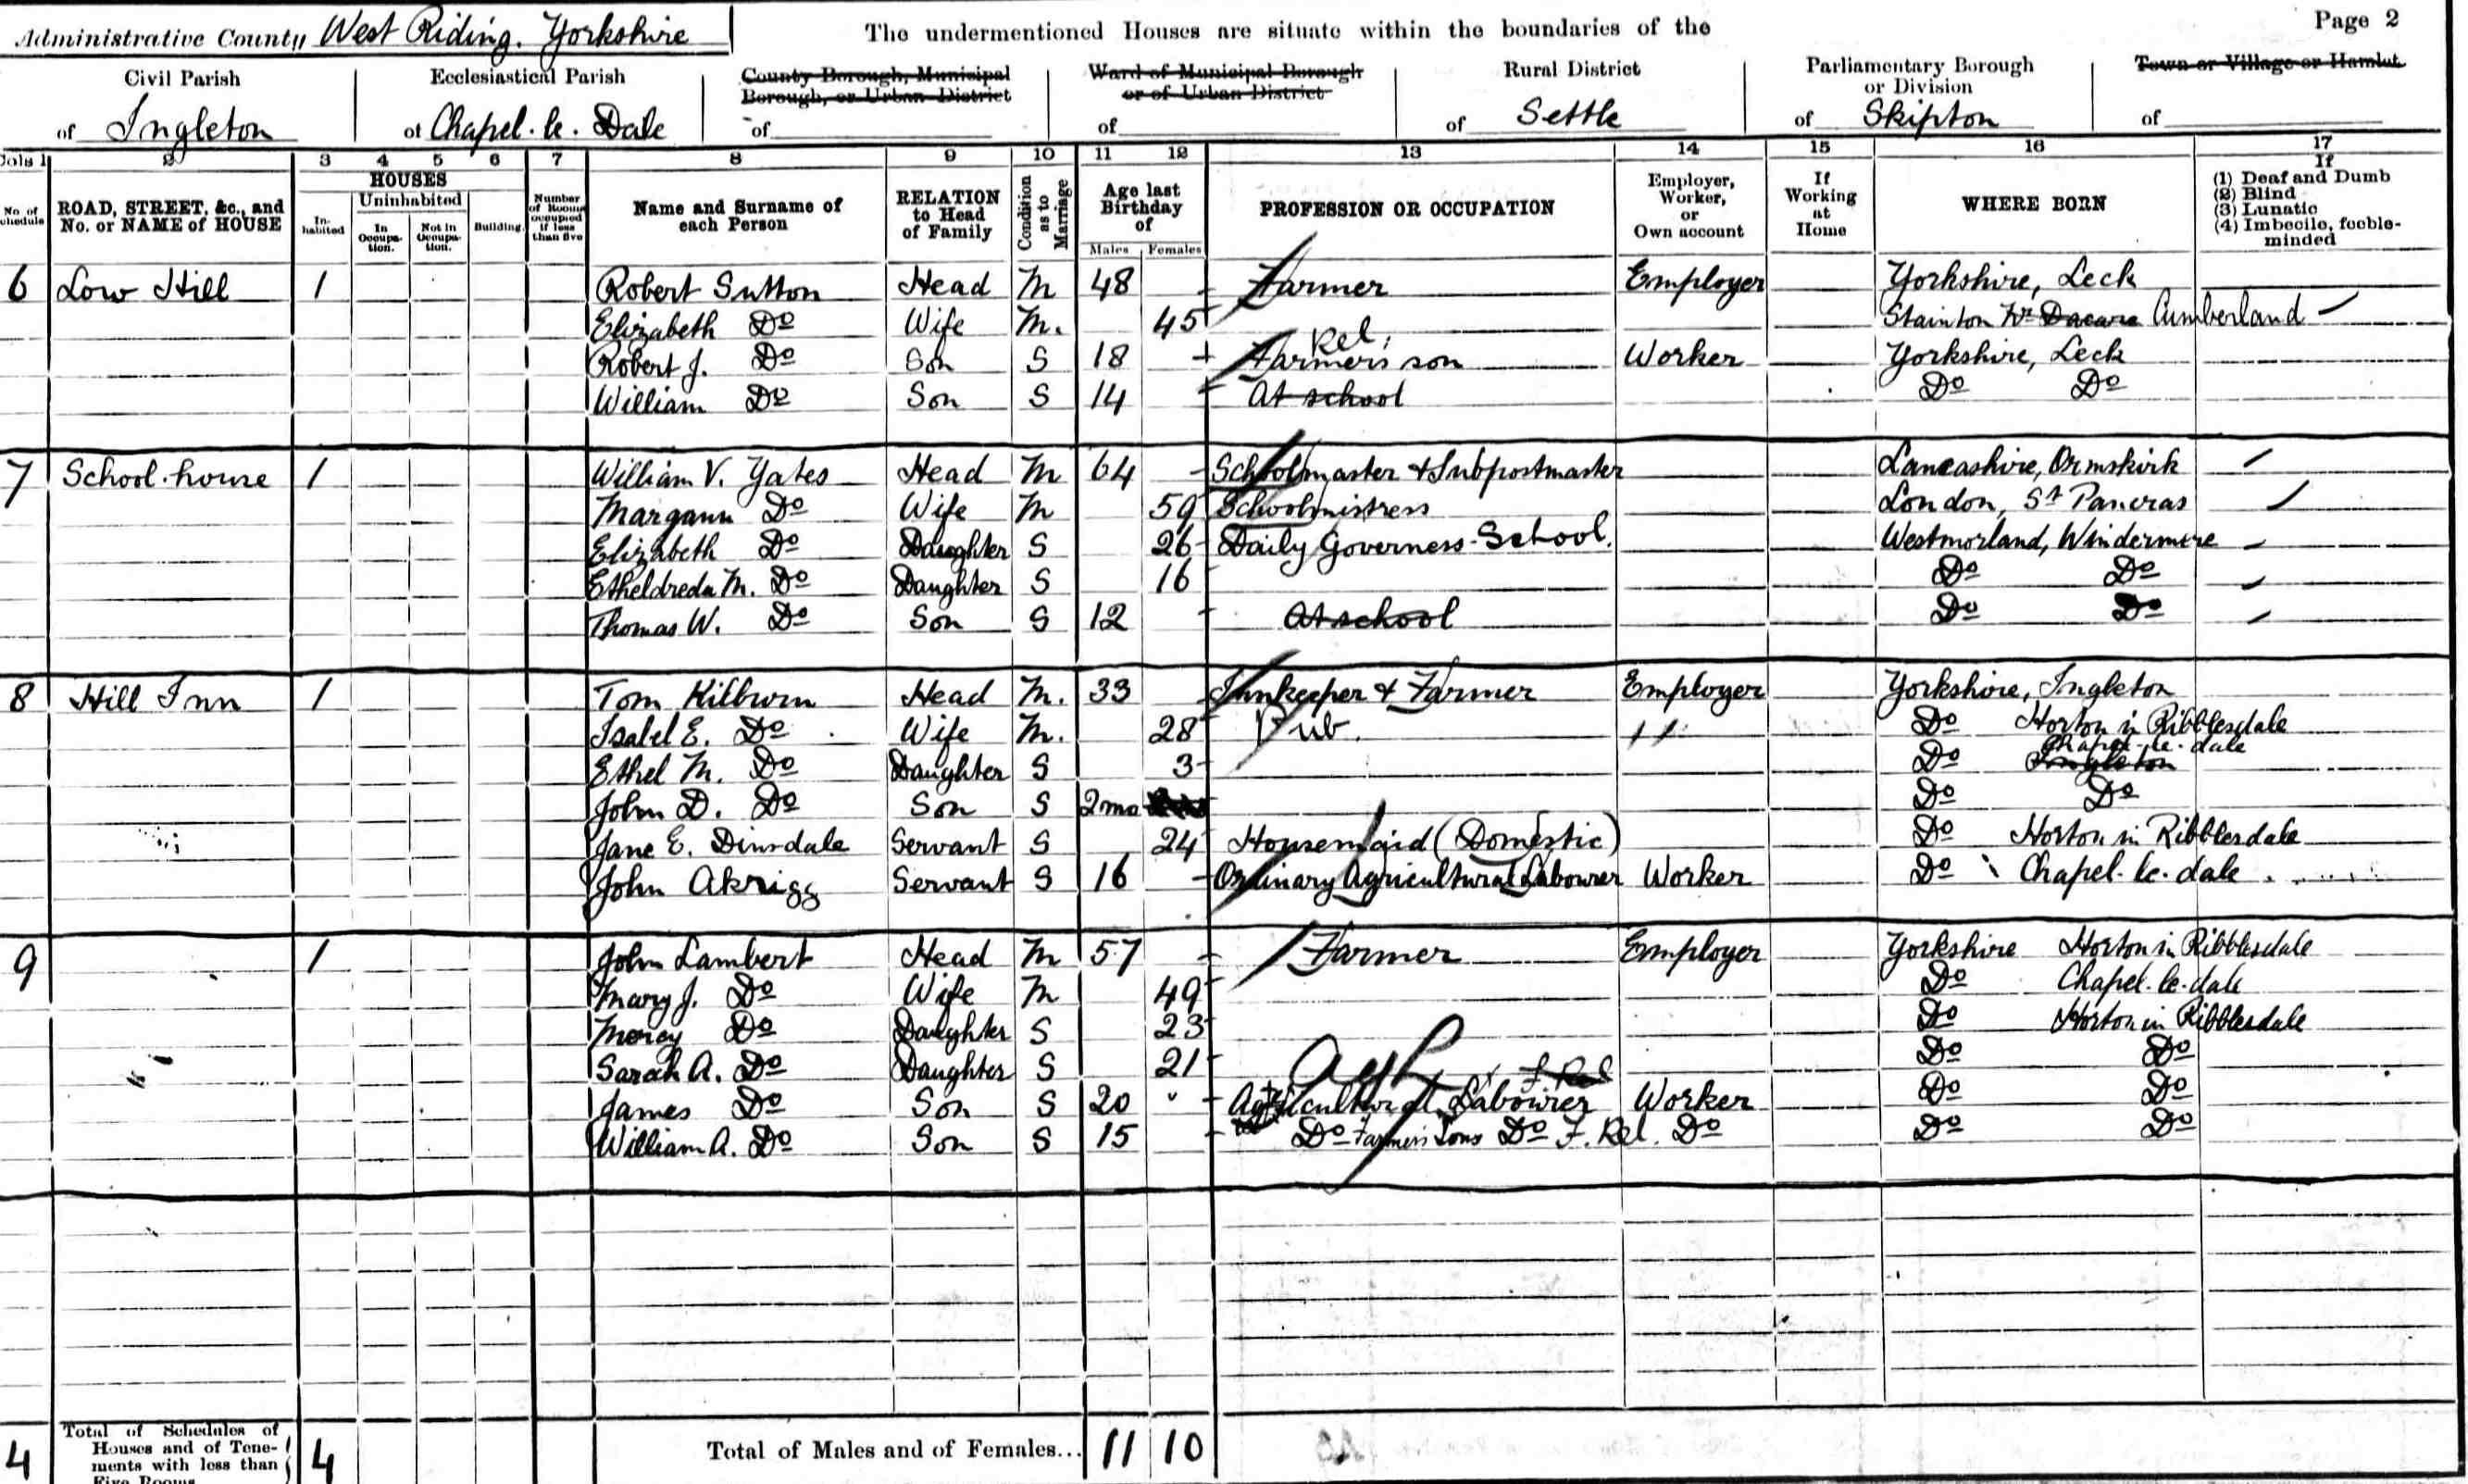 Administrative County West Riding. Yorkshire The undermentioned Houses are situate within the boundaries of the Page 2
Civil Parish of Ingleton
Ecclesiastical Parish of Chapel. le. Dale
County Borough, Municipal Borough, or Urban District of
Ward of Municipal Borough or of Urban District of
Rural District of Settle
Parliamentary Borough or Division of Skipton
Town or Village or Hamlet of
Cols 1 2 3 4 5 6 7 8 9 10 11 12 13 14 15 16 17
No. of Schedule
ROAD, STREET, &c., and No. or NAME of HOUSE
HOUSES
In-habited
Uninhabited
In Occupa-tion.
Not in Occupa-tion.
Building.
Number of Rooms occupied if less than five
Name and Surname of each Person
RELATION to Head of Family
Condition as to Marriage
Age last Birthday of
Males Females
PROFESSION OR OCCUPATION
Employer, Worker, or Own account
If Working at Home
WHERE BORN
If
(1) Deaf and Dumb
(2) Blind
(3) Lunatic
(4) Imbecile, feeble-minded
6 Low Hill 1 Robert Sutton Head M 48 Farmer Employer Yorkshire, Leck
Elizabeth Do Wife M. 45 Stainton Nr Dacre Cumberland
Rel.
Robert J. Do Son S 18 Farmer's son Worker Yorkshire, Leck
William Do Son S 14 At school Do Do
7 School-house 1 William V. Yates Head M 64 Schoolmaster & Subpostmaster Lancashire, Ormskirk
Margann Do Wife M 59 Schoolmistress London, St Pancras
Elizabeth Do Daughter S 26 Daily Governess - School. Westmorland, Windermere
Etheldreda M. Do Daughter S 16 Do Do
Thomas W. Do Son S 12 At school Do Do
8 Hill Inn 1 Tom Kilburn Head M. 33 Innkeeper & Farmer Employer Yorkshire, Ingleton
Isabel E. Do Wife M. 28 Pub. Do Horton in Ribblesdale
Chapel-le-dale
Ethel M. Do Daughter S 3 Do Ingleton
John D. Do Son S 2 mo Do Do
Jane E. Dinsdale Servant S 24 Housemaid (Domestic) Do Horton in Ribblesdale
John Akrigg Servant S 16 Ordinary Agricultural Labourer Worker Do Chapel-le-dale
9 1 John Lambert Head M 57 Farmer Employer Yorkshire Horton in Ribblesdale
Mary J. Do Wife M 49 Do Chapel-le-dale
Mercy Do Daughter S 23 Do Horton in Ribblesdale
Sarah A. Do Daughter S 21 Do Do
F. Rel
James Do Son S 20 Agricultural Labourer Worker Do Do
William A. Do Son S 15 Do Farmer's Sons Do F. Rel. Do Do Do
4 Total of Schedules of Houses and of Tene-ments with less than Five Rooms 4 Total of Males and of Females... 11 10